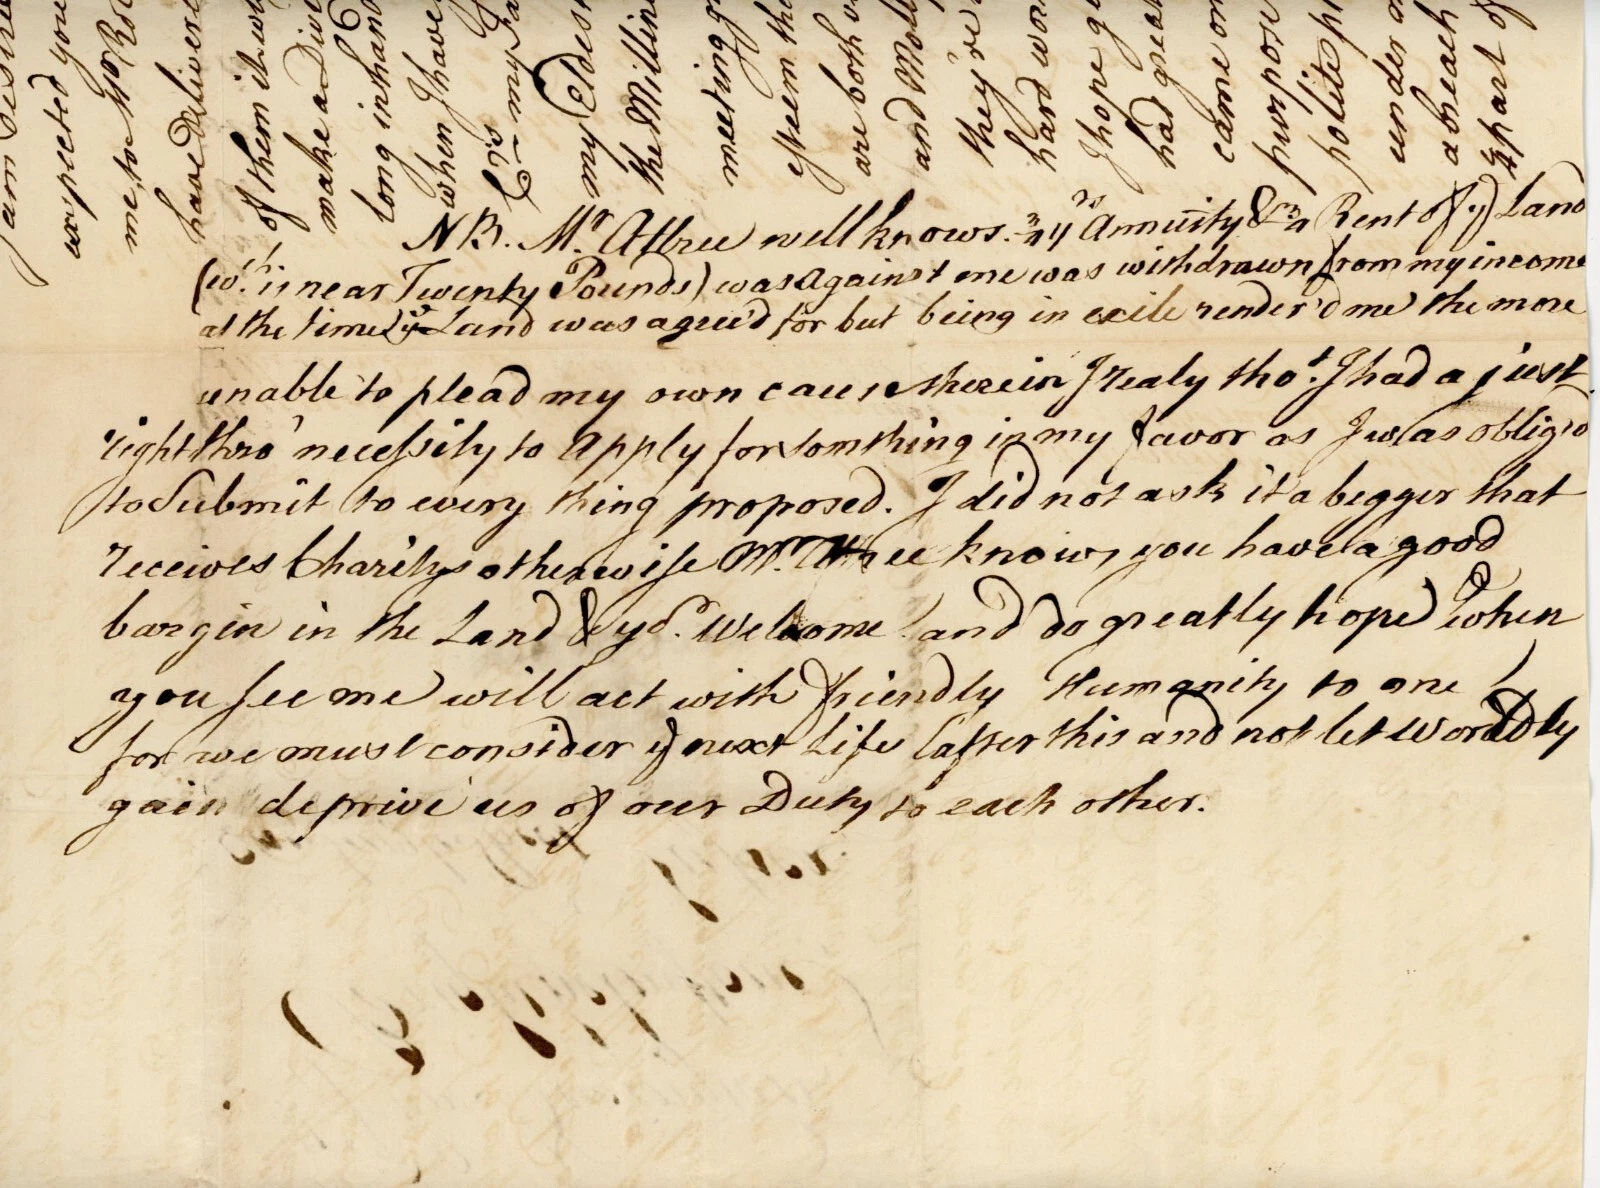 I am desire
expected you
me, to Mr Ro
have Delivere
of them it w
make a Div
long in hand
when I have
my Eldest
the Milline
meeting
esteem the
are both
and Mo
they're
hard wor
I hope g
had grea
came on
purpose
polite p
under
a breach
part of
NB. Mr. Attree well knows. 3/4 yrs Annuity & 3/4 Rent of ye Land
(wch. is near Twenty Pounds) was against me was withdrawn from my income
at the time ye Land was agree'd for but being in exile render'd me the more
unable to plead my own cause therein I realy thot. I had a just
right thro' necessity to apply for somthing in my favor as I was oblig'd
to Submit to every thing proposed. I did not ask it a begger that
receives Charitys otherwise Mr. Attree knows, you have a good
bargin in the Land & yor. Welcome! and do greatly hope when
you see me will act with friendly Humanity to me!
for we must consider ye next Life (after this and not let Worddly
gain deprive us of our Duty to each other.